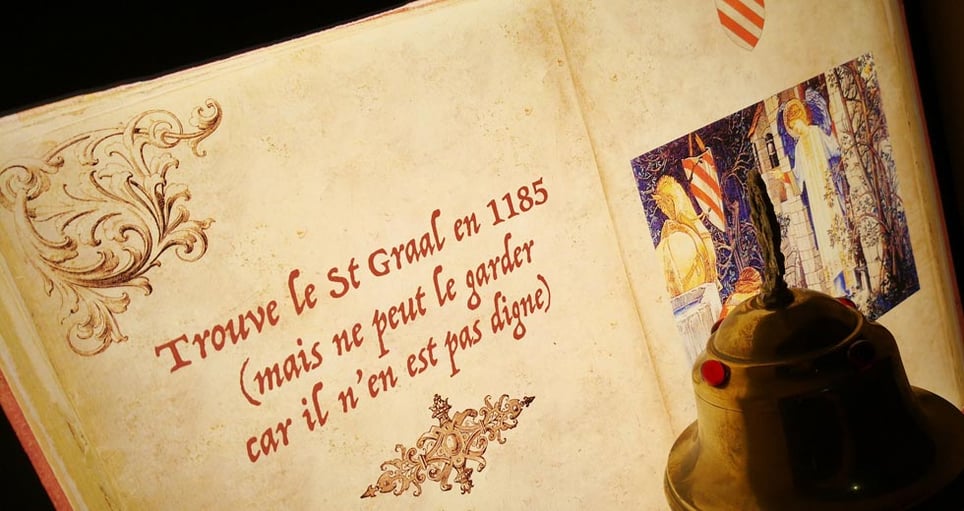 Trouve le St Graal en 1185
(mais ne peut le garder
car il n'en est pas digne)